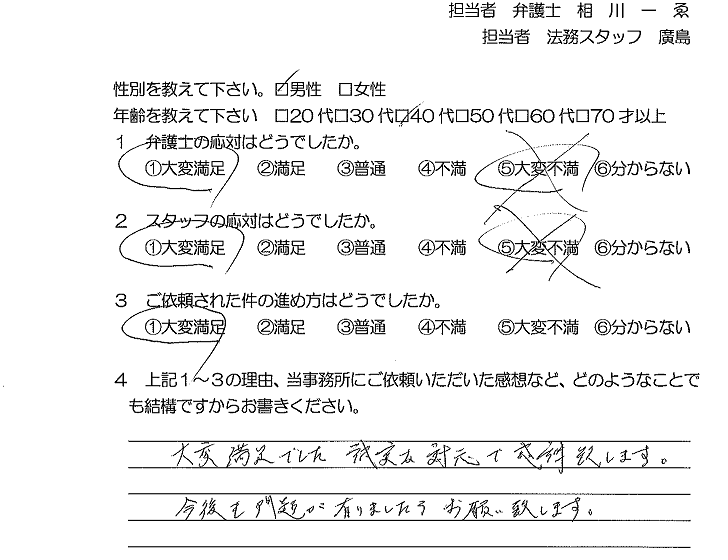 担当者 弁護士 相川一ゑ
担当者 法務スタッフ 廣島
性別を教えて下さい。☑男性 □女性
年齢を教えて下さい □20代□30代☑40代□50代□60代□70才以上
1 弁護士の応対はどうでしたか。
①大変満足 ②満足 ③普通 ④不満 ⑤大変不満 ⑥分からない
2 スタッフの応対はどうでしたか。
①大変満足 ②満足 ③普通 ④不満 ⑤大変不満 ⑥分からない
3 ご依頼された件の進め方はどうでしたか。
①大変満足 ②満足 ③普通 ④不満 ⑤大変不満 ⑥分からない
4 上記1~3の理由、当事務所にご依頼いただいた感想など、どのようなことで
も結構ですからお書きください。
大変満足でした 誠実な対応で感謝致します。
今後も問題が有りましたら お願い致します。